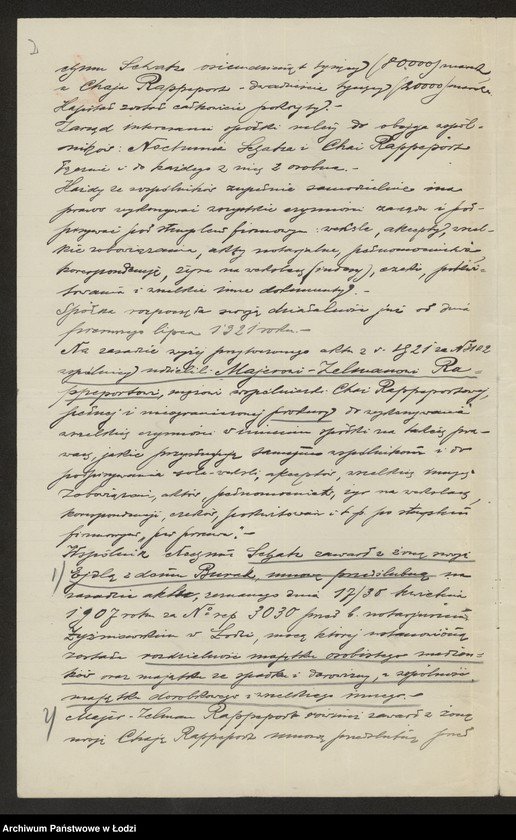 chum Szatz osiemdziesiąt tysięcy (80000) marek
a Chaja Rappeport - dwadzieścia tysięcy (20000) marek.
Kapitał został całkowicie pokryty.-
Zarząd interesami spółki należy do obojga spól-
ników: Nochuma Szatza i Chai Rappeport
łącznie i do każdego z nich z osobna.-
Każdy ze wspólników zupełnie samodzielnie ma
prawo wykonywać wszystkie czynności zarządu i pod-
pisywać pod stemplem firmowym: weksle, akcepty, wszel-
kie zobowiązania, akty notarjalne, pełnomocnictwa
korespondencję, żyra na wekslach (indosy), czeki, pokwi-
towania i wszelkie inne dokumenty.-
Spółka rozpoczęła swoją działalność już od dnia
pierwszego lipca 1921 roku.-
Na zasadzie wyżej przytoczonego aktu z r. 1921 za № 3102
wspólnicy udzielili Majerowi-Zelmanowi Ra-
ppeportowi, mężowi wspólniczki Chai Rappeportowej,
pełnej i nieograniczonej prokury do wykonywania
wszelkich czynności w imieniu spółki na takich pra-
wach, jakie przysługują samym wspólnikom i do
podpisywania weksli, akceptów, wszelkich
zobowiązań, aktów, pełnomocnictw, żyr na wekslach,
korespondencji, czeków, pokwitowań i t.p. pod stemplem
firmowym „per procura".-
Wspólnik Nochum Szatz zawarł z żoną swoją
1) Ejdlą z domu Burak, umowę przedślubną na
zasadzie aktu, zeznanego dnia 17/30 kwietnia
1907 roku za № rep. 3030 przed b. notarjuszem
w Łodzi, mocą której ustanowioną
została rozdzielność majątku osobistego małżon-
ków oraz majątku ze spadku i darowizny, a wspólność
majątku dorobkowego i wszelkiego innego.-
2) Majer-Zelman Rappeport również zawarł z żoną
swoją Chają Rappeport umowę przedślubną przed
Archiwum Państwowe w Łodzi